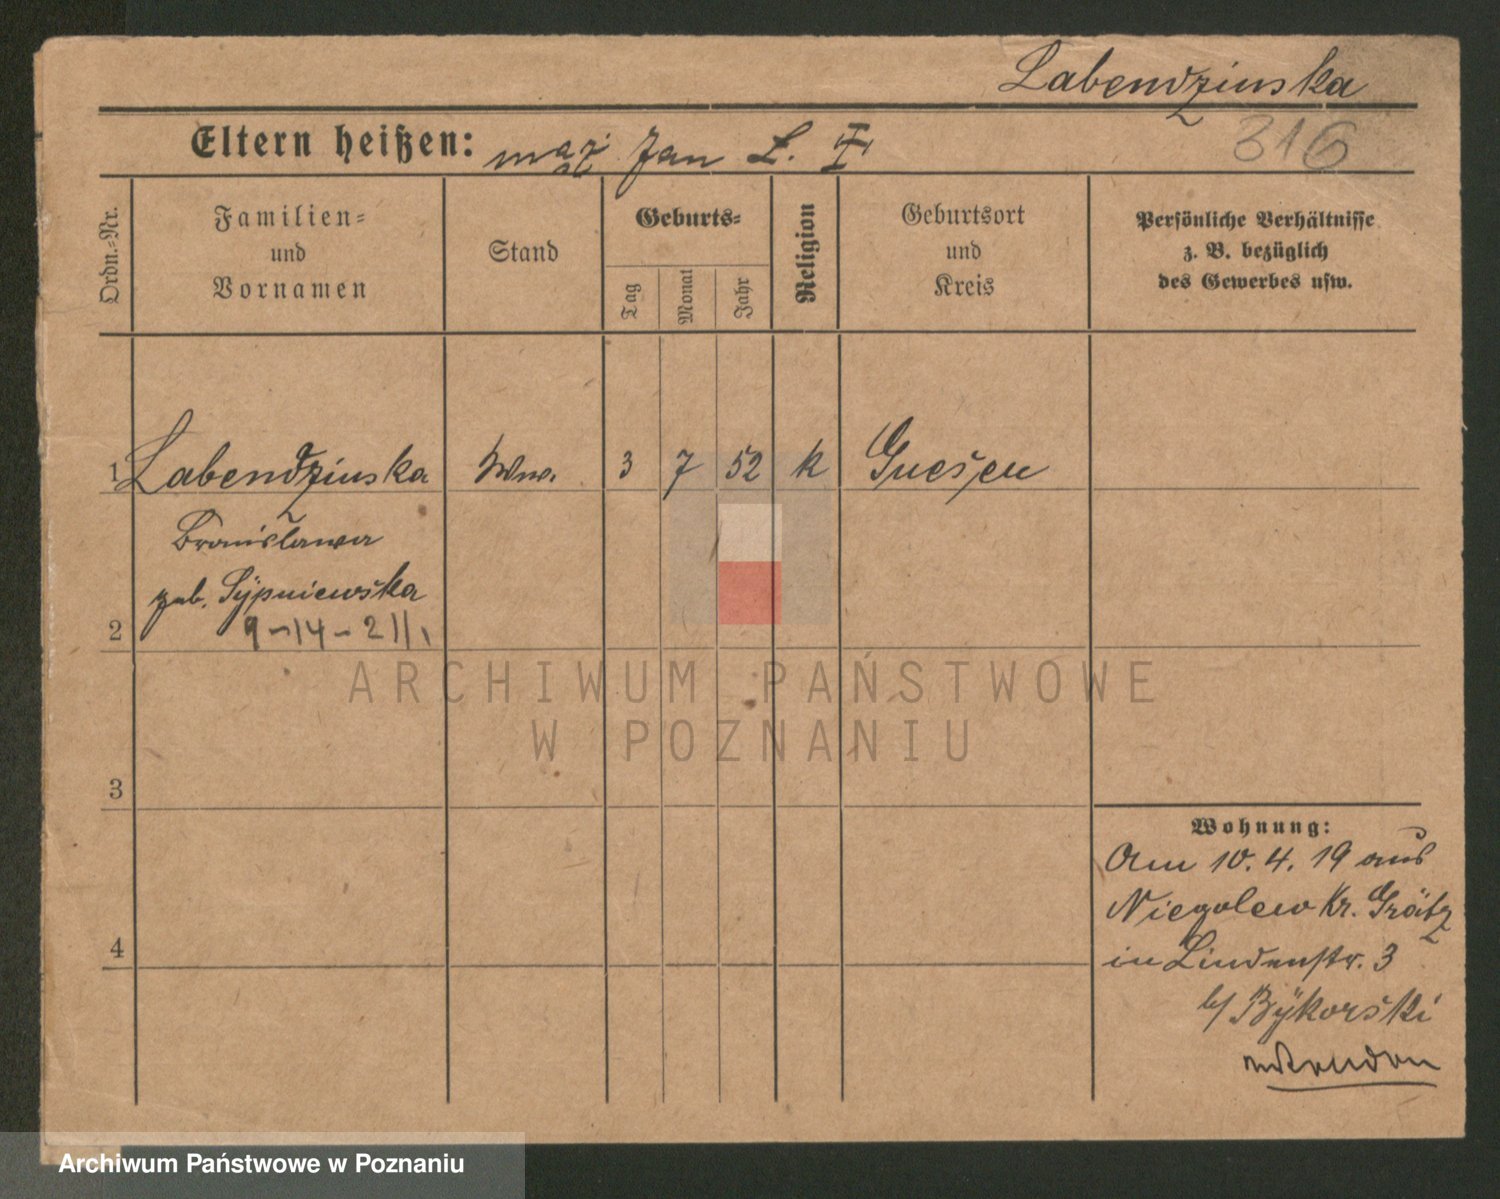 Labendzinska
316
Eltern heißen: mąż Jan Ł. †
Ordn.-Nr.
Familien-
und
Vornamen
Stand
Geburts-
Tag
Monat
Jahr
Religion
Geburtsort
und
Kreis
Persönliche Verhältnisse
z. B. bezüglich
des Gewerbes usw.
1 Labendzinska Ww. 3 7 52 k Gnesen
Bronislawa
geb. Sypniewska
9-14-211.
2
3
4
Wohnung:
Am 10.4.19 aus
Niegolewo Kr. Grätz
in Lindenstr. 3
b/ Bykorski
ARCHIWUM PAŃSTWOWE
W POZNANIU
Archiwum Państwowe w Poznaniu